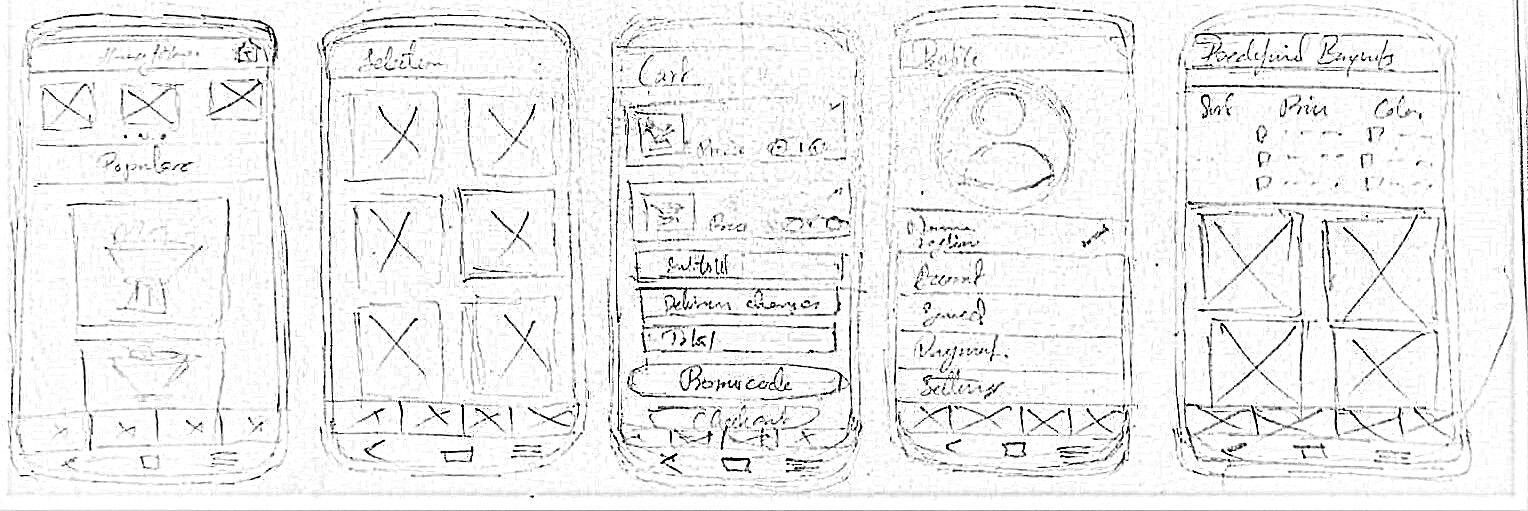 Populare
Selection
Cart
Price
Price
Subtotal
Delivery charges
Total
Promocode
Checkout
Profile
Name
Saved
Payment.
Settings
Predefined Bouquets
Sort Price Color